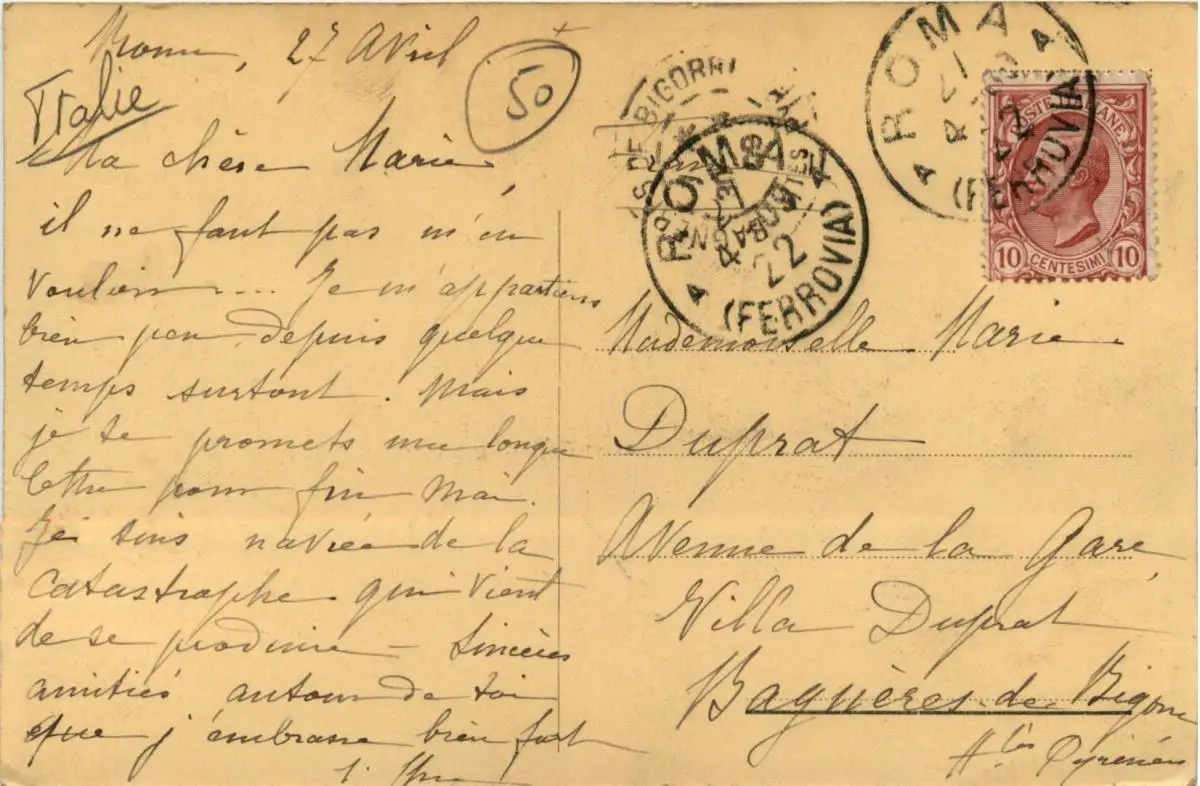 Rome, 27 Avril
Italie
50
Ma chère Marie
il ne faut pas m'en
vouloir.... Je m'appartiens
bien peu depuis quelque
temps surtout. Mais
je te promets une longue
lettre pour fin Mai.
Je suis navrée de la
catastrophe qui vient
de se produire - Sincères
amitiés autour de toi
que j'embrasse bien fort
ROMA
(FERROVIA)
22
BAGNÈRES DE BIGORRE
ROMA
(FERROVIA)
POSTE ITALIANE
10 CENTESIMI 10
Mademoiselle Marie
Duprat
Avenue de la Gare
Villa Duprat
Bagnères de Bigorre
Htes Pyrénées